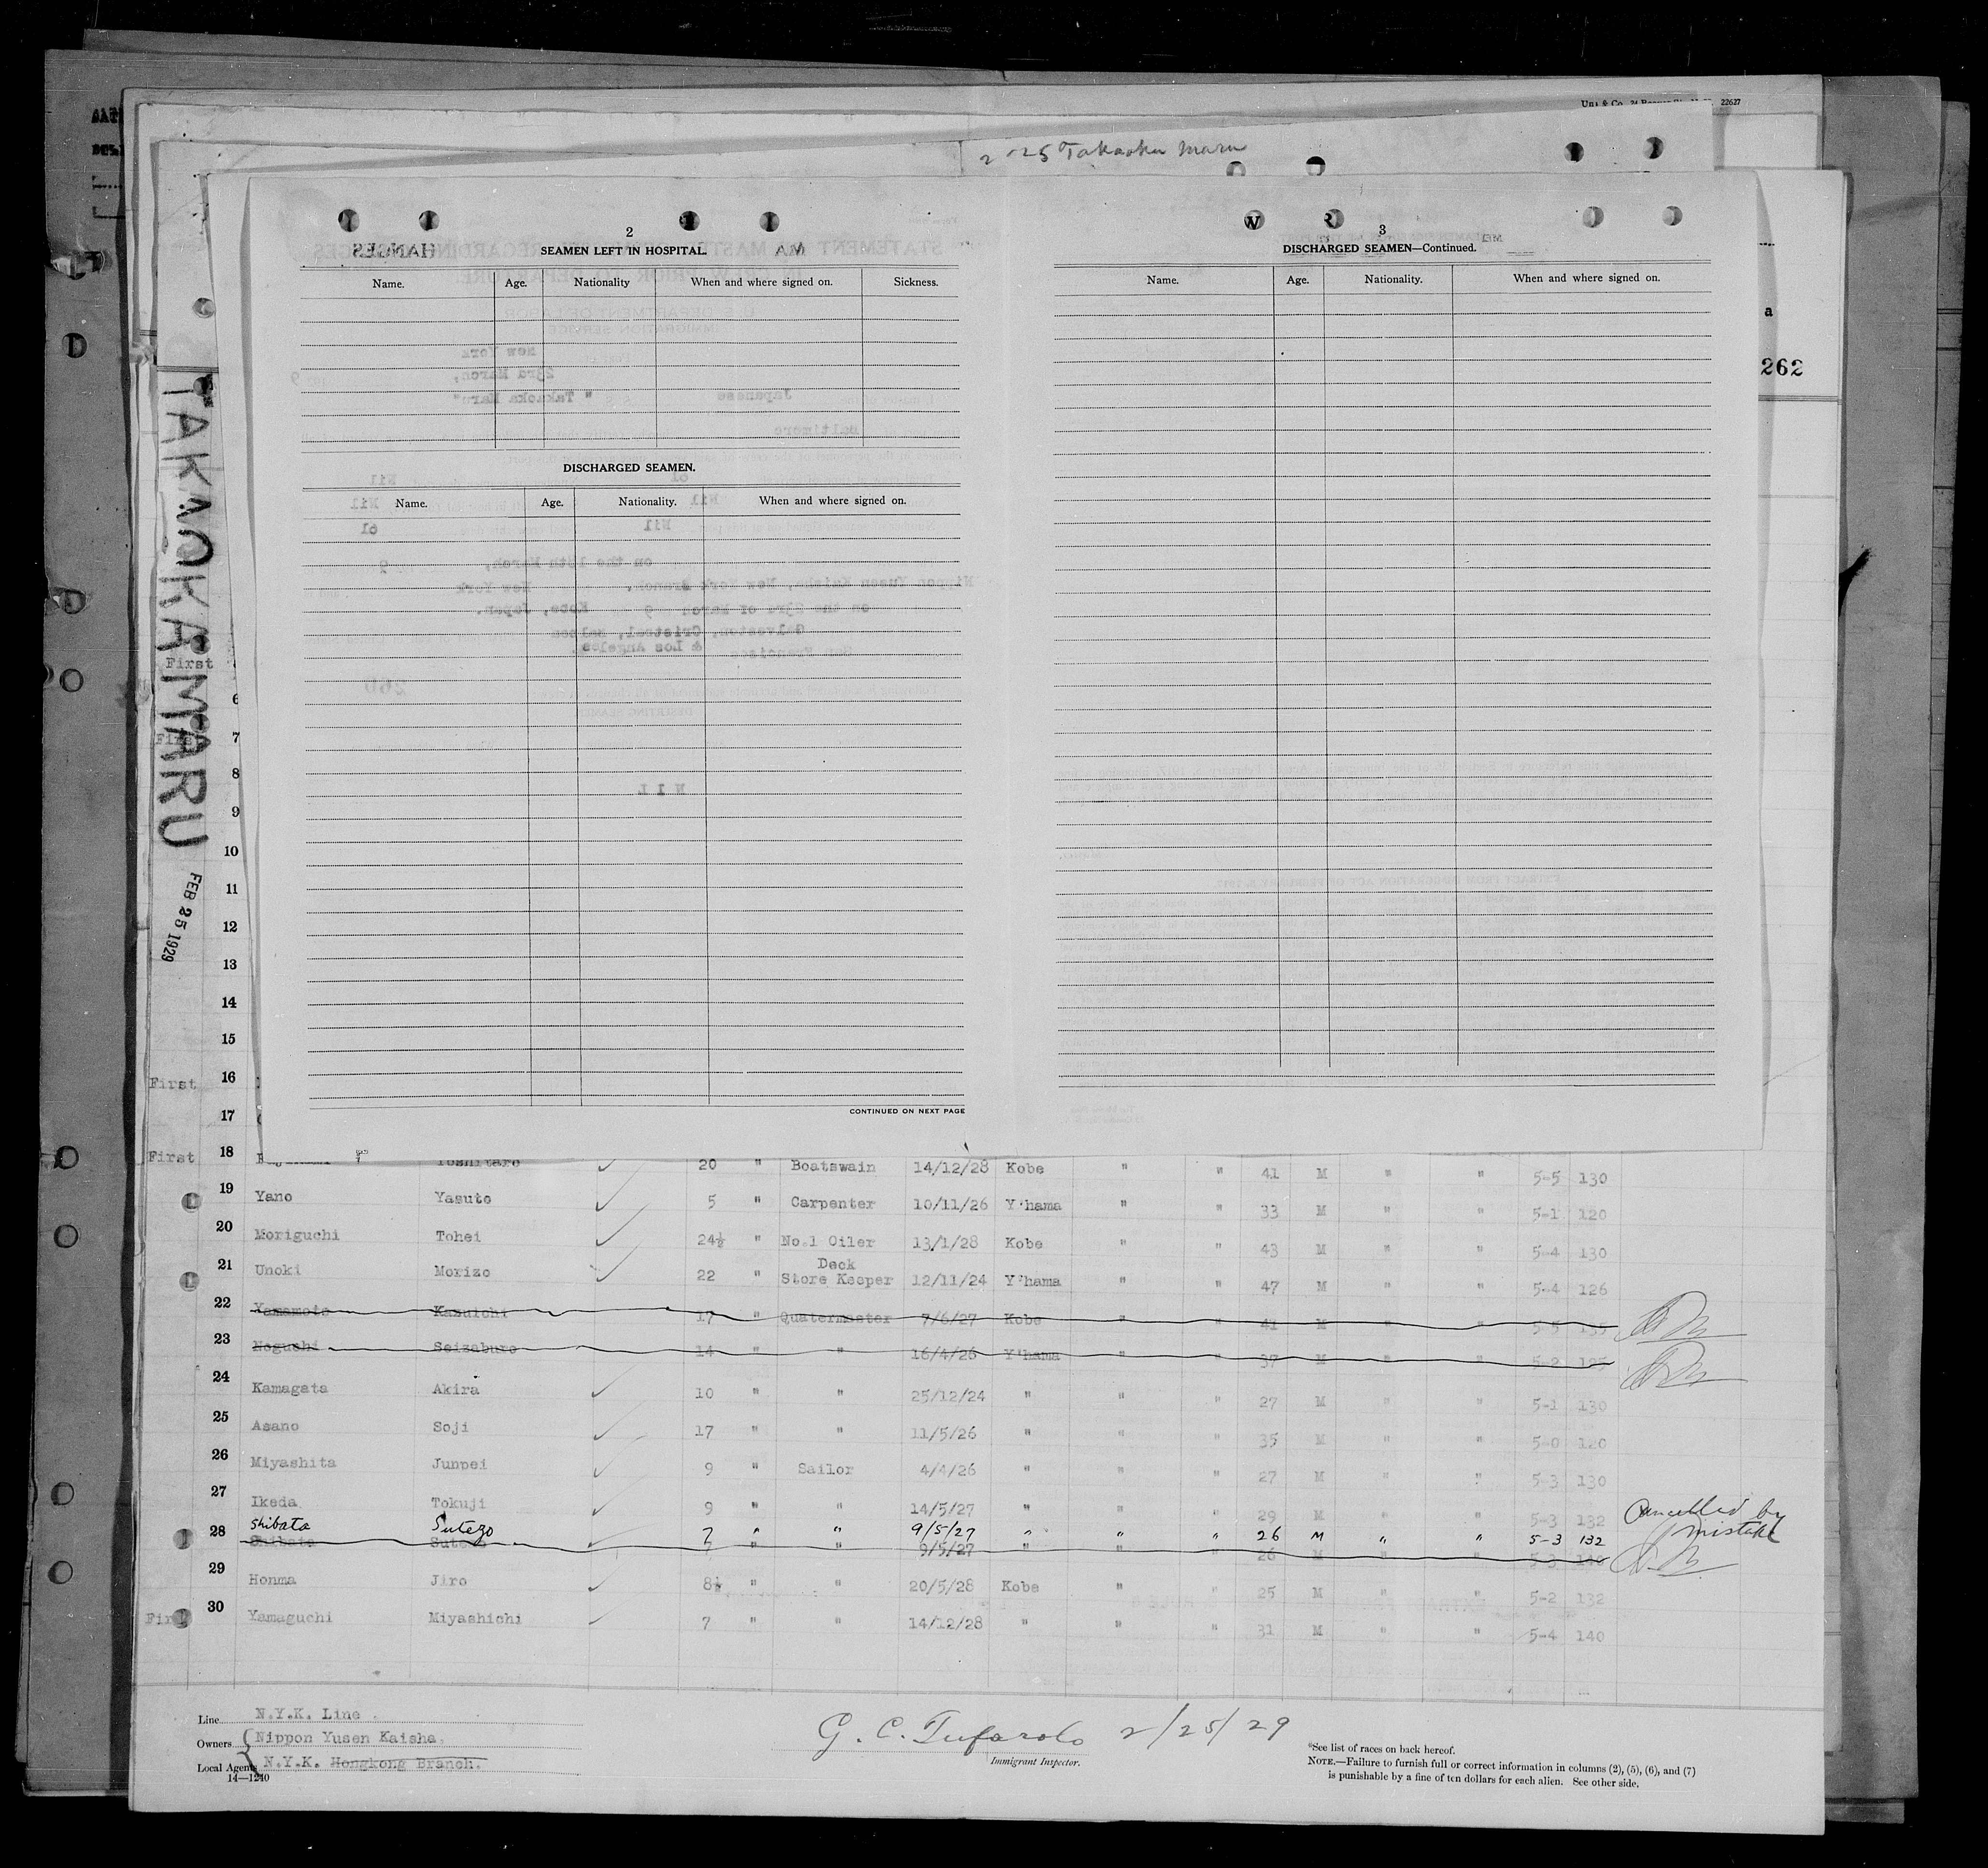 22627
2-25 Takaoka Maru
2
SEAMEN LEFT IN HOSPITAL.
Name. Age. Nationality When and where signed on. Sickness.
DISCHARGED SEAMEN.
Name. Age. Nationality. When and where signed on.
CONTINUED ON NEXT PAGE
3
DISCHARGED SEAMEN—Continued.
Name. Age. Nationality. When and where signed on.
a
262
TAKAOKA MARU
FEB 25 1929
First
6
First 7
8
9
10
11
12
13
14
15
First 16
17
First 18 Yoshitaro 20 " Boatswain 14/12/28 Kobe " " 41 M " " 5-5 130
19 Yano Yasuto 5 " Carpenter 10/11/26 Y'hama " " 33 M " " 5-1 120
20 Moriguchi Tohei 24½ " No.1 Oiler 13/1/28 Kobe " " 43 M " " 5-4 130
21 Unoki Morizo 22 " Deck Store Keeper 12/11/24 Y'hama " " 47 M " " 5-4 126
22 Yamamoto Kasuichi 17 " Quatermaster 7/6/27 Kobe " " 41 M " " 5-5 135
23 Noguchi Seizaburo 14 " " 16/4/26 Y'hama " " 37 M " " 5-2 125
24 Kamagata Akira 10 " " 25/12/24 " " " 27 M " " 5-1 130
25 Asano Soji 17 " " 11/5/26 " " " 35 M " " 5-0 120
26 Miyashita Junpei 9 " Sailor 4/4/26 " " " 27 M " " 5-3 130
27 Ikeda Tokuji 9 " " 14/5/27 " " " 29 M " " 5-3 132
Shibata Sutezo 7 " " 9/5/27 " " " 26 M " " 5-3 132 Cancelled by mistake
28 Shibata Sutezo 7 " " 9/5/27 " " " 26 M " " 5-3
29 Honma Jiro 8½ " " 20/5/28 Kobe " " 25 M " " 5-2 132
First 30 Yamaguchi Miyashichi 7 " " 14/12/28 " " " 31 M " " 5-4 140
Line N.Y.K. Line
Owners Nippon Yusen Kaisha
Local Agents N.Y.K. Hongkong Branch.
14—1240
G. C. Tufarolo 2/25/29
Immigrant Inspector.
*See list of races on back hereof.
NOTE.—Failure to furnish full or correct information in columns (2), (5), (6), and (7)
is punishable by a fine of ten dollars for each alien. See other side.